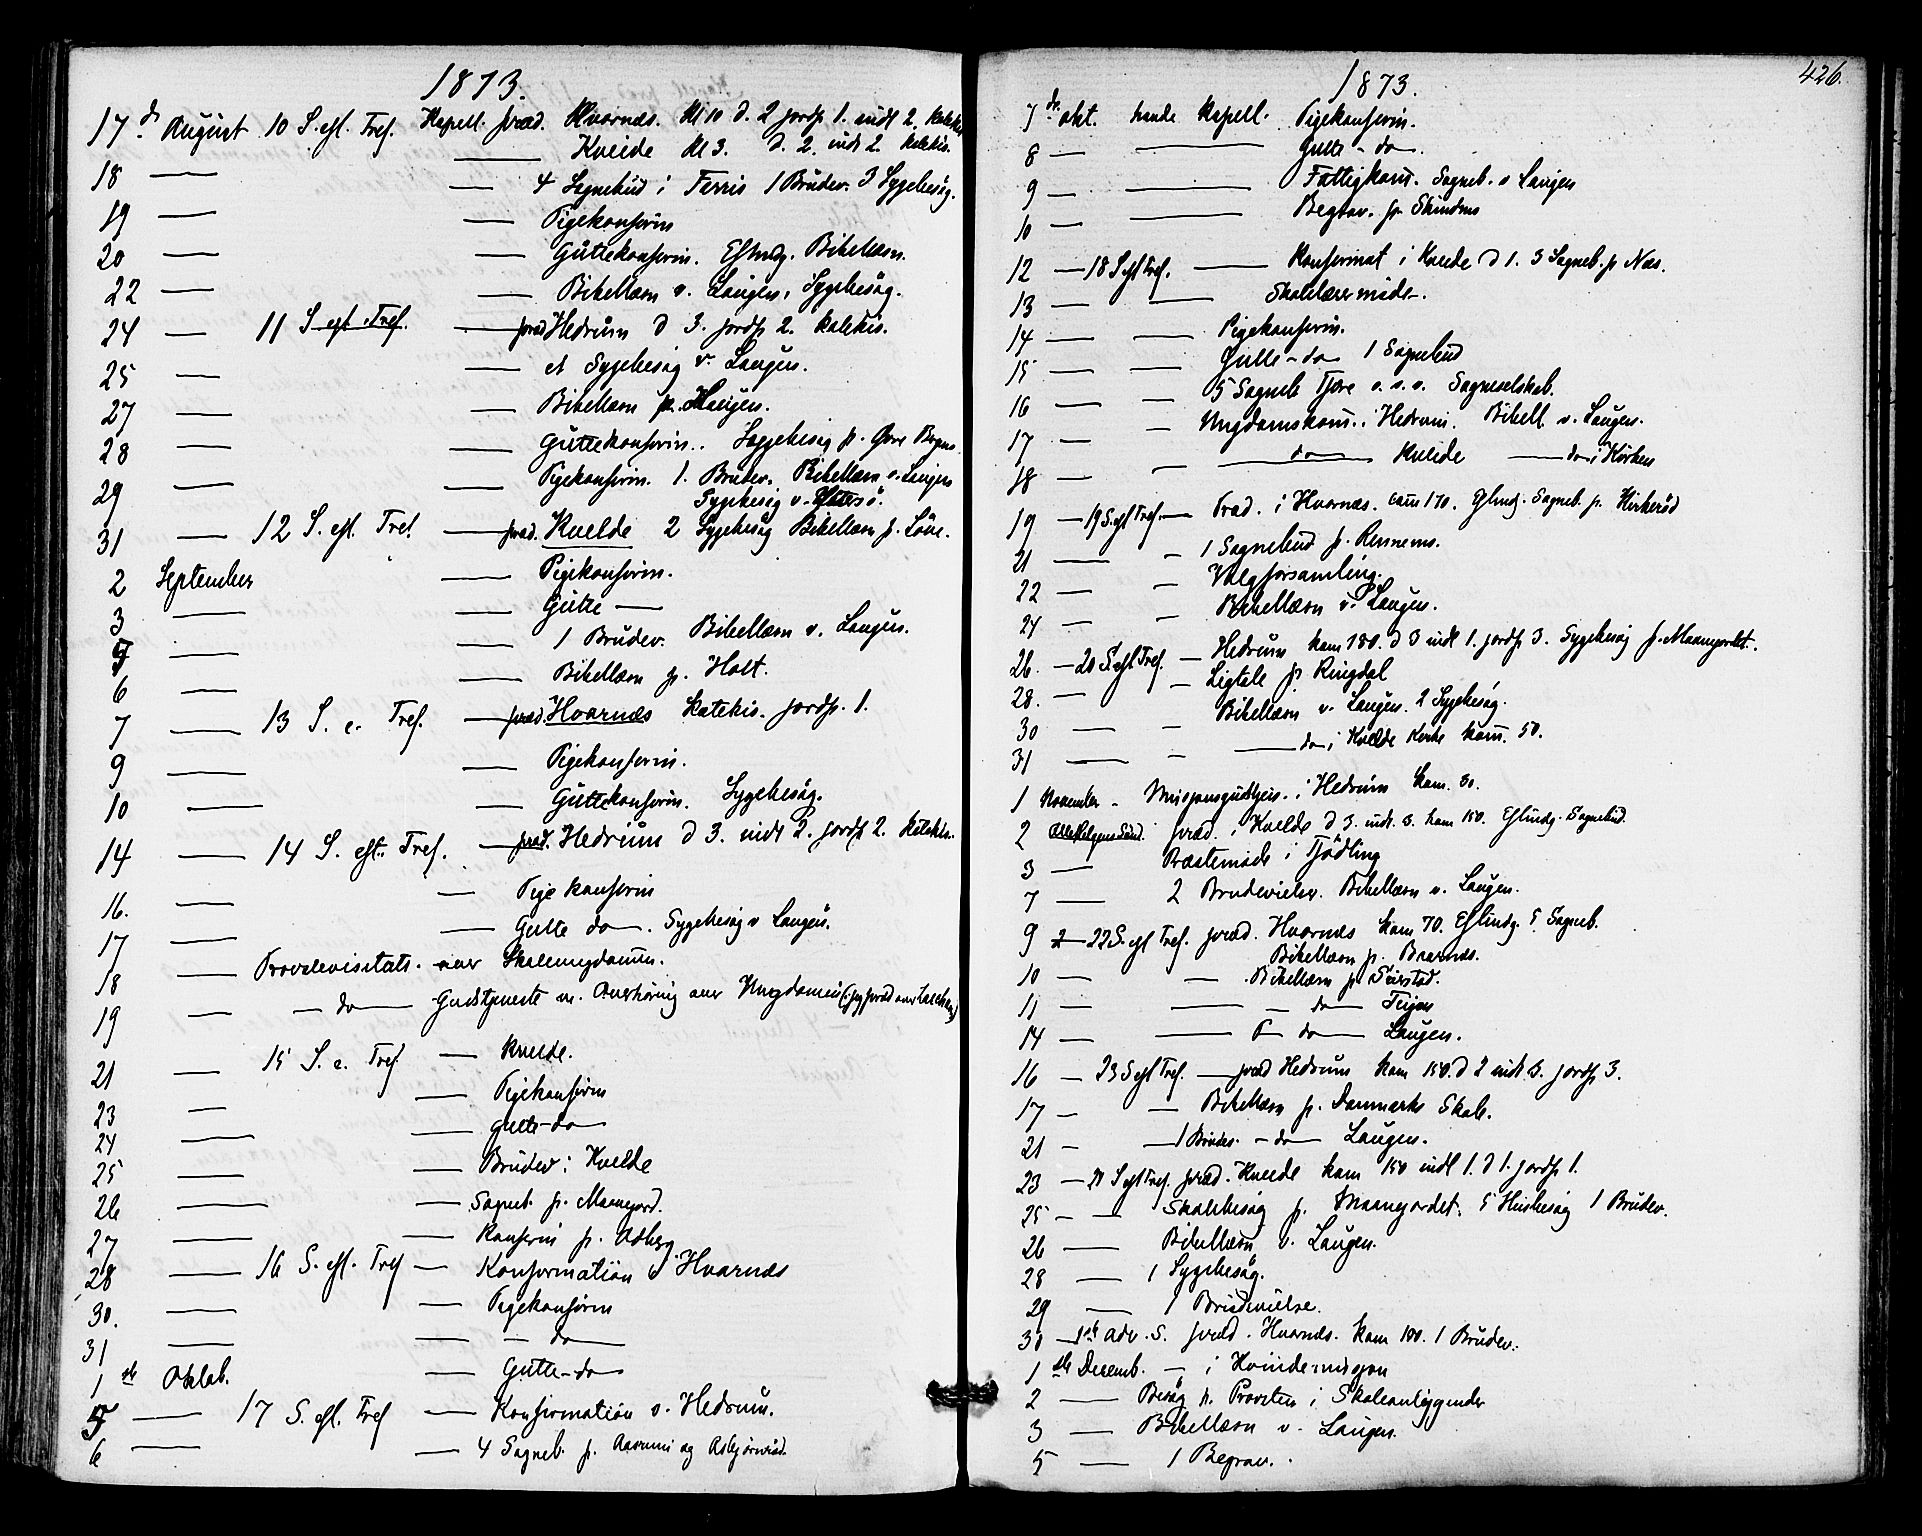 1873.
17 d. August 10 S. eft. Tref. Kapell. præd. Hvarnes. Kl 10 d. 2 jordf 1. indt 2. katekis
—— Kvelde Kl 3. d. 2. indt 2. katekis.
18 —— —— 4 Sognebud i Farris 1 Brudev. 3 Sygebesøg.
19 —— —— Pigekonfirm
20 —— —— Guttekonfirm. Eftmdg. Bibellæsn.
22 —— —— Bibellæsn v. Laugen, Sygebesøg.
24 —— 11 S eft. Tref. —— præd Hedrum d 3. jordf 2. katekis.
25 —— —— et Sygebesøg v. Laugen.
27 —— —— Bibellæsn p. Haugen.
28 —— Guttekonfirm.. Sygebesøg p.
29 —— —— Pigekonfirm. 1. Brudev. Bibellæsn v. Laugen
Sygebesøg v.
31 —— 12 S. eft. Tref —— præd. Kvelde 2 Sygebesøg Bibellæsn p. Løve.
2 September —— Pigekonfirm.
3 —— —— Gutte ——
5 —— —— 1 Brudev. Bibellæsn v. Laugen.
6 —— —— Bibellæsn p. Holt.
7 —— 13 S. e. Tref. —— præd Hvarnes Katekis. jordf. 1.
9 —— —— Pigekonfirm.
10 —— —— Guttekonfirm. Sygebesøg.
14 —— 14 S. eft. Tref. —— præd. Hedrum d 3. indt 2. jordf 2. katekis.
16. —— —— Pige konfirm
17 —— —— Gutte do —. Sygebesøg v Laugen.
18 —— Provstevisitats. over Skoleungdommen.
19 —— — do —— Gudstjeneste m. Overhøring over Ungdommen
21 —— 15 S. e. Tref —— Kvelde.
23 —— —— Pigekonfirm
24 —— —— Gutte-do
25 —— —— Brudev i Kvelde
26 —— —— Sogneb. p. Maanejord.
27 —— —— Konfirm p. Odberg.
28 —— 16 S. eft. Tref —— Konfirmation i Hvarnes
30. —— —— Pigekonfirm
31 —— —— — do ——
1 ste Oktob. —— Gutte-do
5 —— 17 S. eft. Tref —— Konfirmation v. Hedrum.
6 —— —— 4 Sogneb. p. og
426.
1873.
7 de okt. Kapell. Pigekonfirm.
8 —— —— Gutte - do —.
9 —— —— Fattigkom. Sogneb. v Laugen
10 —— —— Begrav. p.
12 — 18 S eft Tref. —— Konfirmat i Kvelde d 1. 3 Sogneb. p Næs.
13 —— —— Skolelærermøde.
14 —— —— Pigekonfirm.
15 —— —— Gutte - do 1 Sognebud
16 —— —— 5 Sogneb Tjøre o.s.v. Sogneselskab.
17 —— — Ungdomskom. i Hedrum. Bibell. v. Laugen.
18 —— — —— do —— Kvelde —— do i Kirken
19 — 19 S. eft Tref. — Præd. i Hvarnes. kom 170. Eftmdg. Sogneb. p. Kirkerød
21 —— — 1 Sognebud p.
22 —— — Valgforsamling.
24 —— — Bibellæsn v. Laugen.
26. — 20 S. eft Tref. — Hedrum kom 180. d 3 indt 1. jordf 3. Sygebesøg p. Maanejordet.
28. —— — Ligtale p Ringdal
30 —— — Bibellæsn v. Laugen. 2 Sygebesøg.
31 —— — —— do i Kvelde Kirke kom. 50.
1 November — Missionsgudstjen. i Hedrum kom. 30.
2 Allehelgens Sønd. præd. i Kvelde d 3. indt. 3. kom 150. Eftmdg. Sognebud.
3 —— Præstemøde i Tjødling
7 —— 2 Brudevielser. Bibellæsn v. Laugen.
9 — 22 S. eft Tref. præd. Hvarnes kom 70. Eftmdg. 5 Sogneb.
Bibellæsn p.
10 —— — Bibellæsn p
11 —— —— — do —
14 —— —— — do —— Laugen.
16 — 23 S eft Tref. — præd Hedrum kom 150. d 2 indt 3. jordf 3.
17 — — Bibellæsn p. Danmarks Skole.
21 — — 1 Brudev. — do — Laugen.
23 — S eft Tref. præd. Kvelde kom 150 indt 1. d 1. jordf 1.
25 — — Skolebesøg p. Maanejordet. 5 Husbesøg 1 Brudev.
26 —— Bibellæsn v. Laugen.
28 —— 1 Sygebesøg.
29 —— 1 Brudevielse.
30 — 1ste adv. S. præd. Hvarnes. kom 100. 1 Brudev.
1 ste Desemb. — i Kvindemission
2 —— Besøg Provsten i Skoleanliggender
3 —— Bibellæsn v. Laugen.
5 —— 1 Begrav.